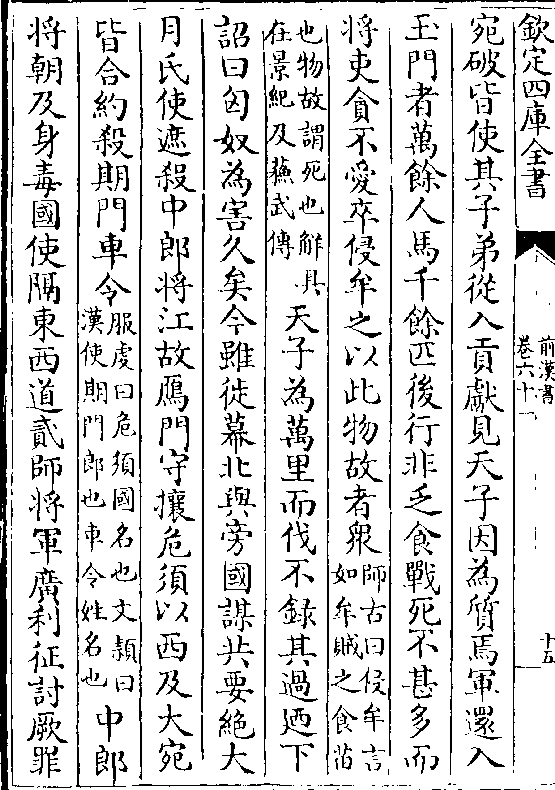 欽定四庫全書
前漢書
卷六十一
十五
宛破皆使其子弟從入貢獻見天子因為質焉軍還入
玉門者萬餘人馬千餘匹後行非乏食戰死不甚多而
將吏貪不愛卒侵牟之以此物故者衆師古曰侵牟言如牟賊之食苗
也物故謂死也解具在景紀及蘇武傳天子為萬里而伐不録其過廼下
詔曰匈奴為害久矣今雖徙幕北與旁國謀共要絶大
月氏使遮殺中郎將江故鴈門守攘危須以西及大宛
皆合約殺期門車令服䖍曰危須國名也文頴曰漢使期門郎也車令姓名也中郎
將朝及身毒國使隔東西道貳師將軍廣利征討厥罪